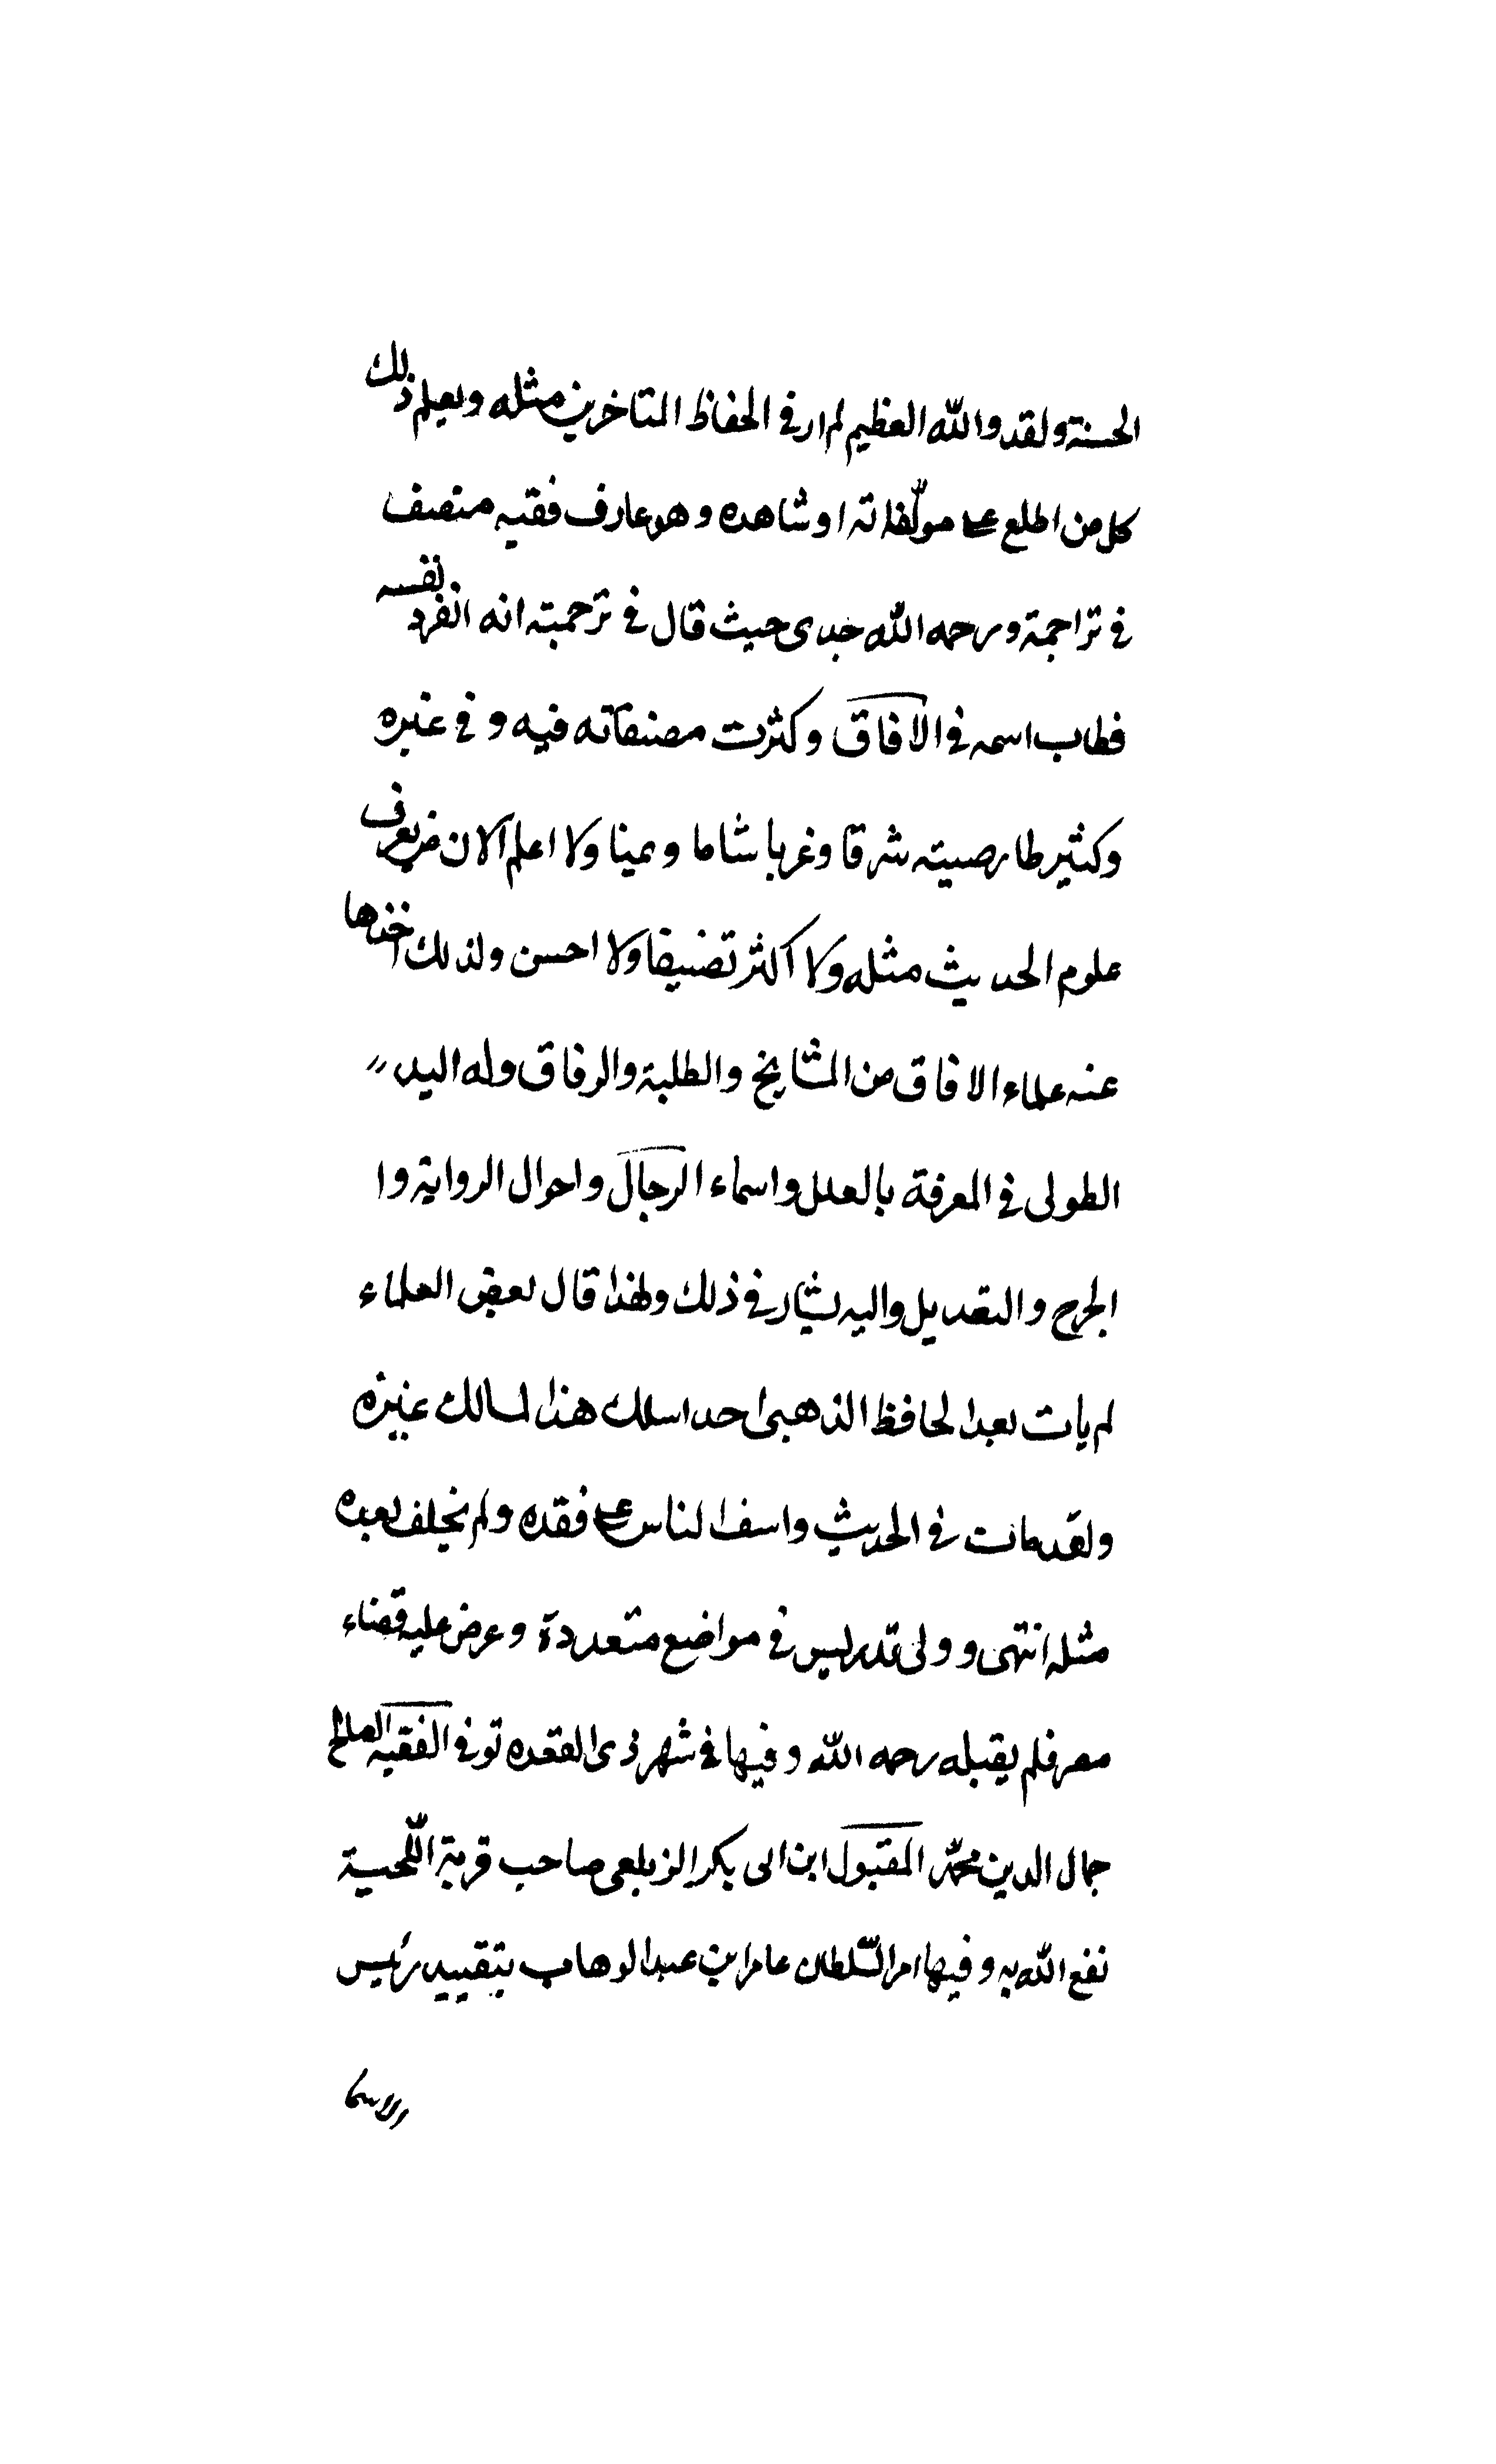 الحسنة ولقد والله العظيم لم ار في الحفاظ المتاخرين مثله ويعلم ذلك
كل من اطلع على مولّفاته او شاهده وهو عارف فقيه منصف
في تراجمة ورحمه الله جدى حيث قال في ترحمبته انه انفرد نفسه
فطاب اسمه في الآفاق وكثرت مصنفاته فيه و في غيره
وكثير طار صيته شرقا وغربا شاما و يمينا ولا اعلم الان من يعرف
علوم الحديث مثله ولا اكثر تضنيفا ولا احسن ولذلك اخذها
عنه علماء الافاق من المشايخ والطلبة والرفاق وله اليد
الطولى في المعرفة بالعلل واسماء الرجال واحوال الرواية وا
الجرح والتعديل واليه يشار في ذلك ولهذا قال بعض العلماء
لم يات بعد الحافظ الذهبي احد اسلك هذا المسالك غيره
ولقد مات في الحديث واسف الناس على فقده ولم يخلف بعده
مثله انتهى و ولى تدريس في مواضع متعددة وعرض عليه قضاء
مصر فلم يقبله رحمه الله وفيها في شهر ذى القعده توفى الفقيه الصالح
جمال الدين محمّد المقبول ابن ابى بكر الزيلعى صاحب قرية اللّحية
نفع الله به وفيها امر السّلطان عامر ابن عبد الوهاب بتقييد رئيس